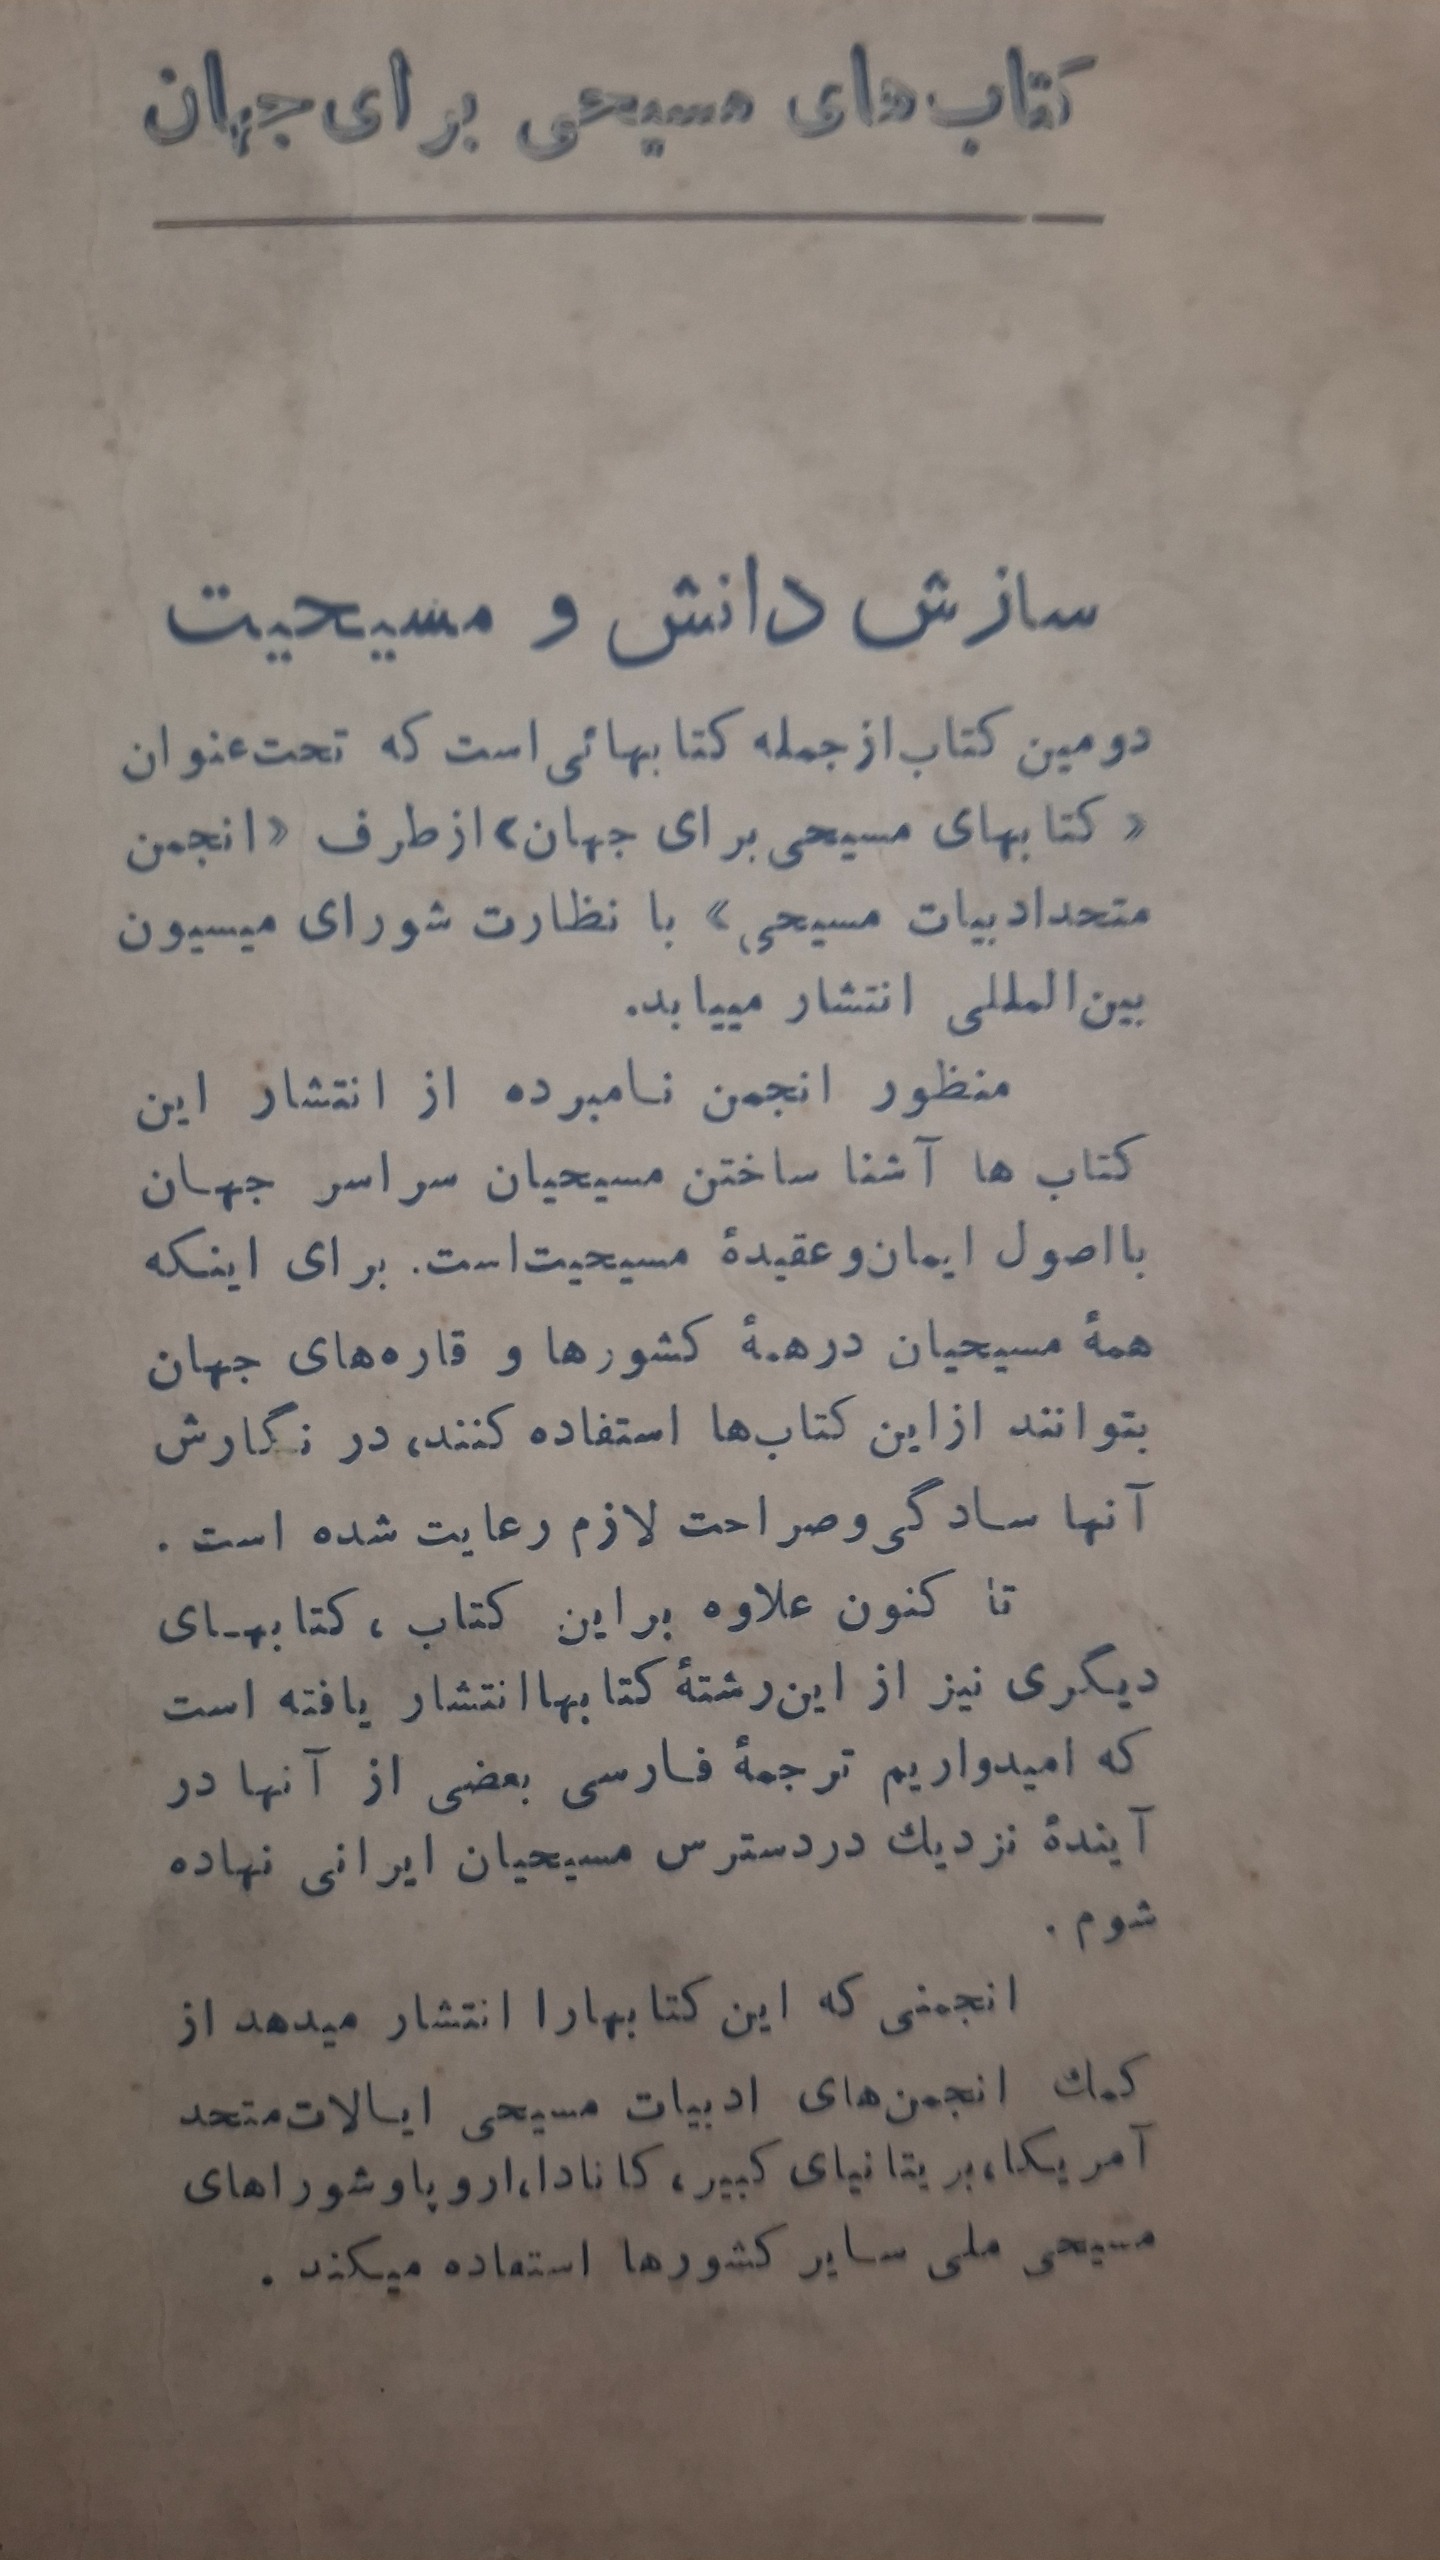 کتاب‌های مسیحی برای جهان
سازش دانش و مسیحیت
دومین کتاب از جمله کتابهائی است که تحت عنوان
« کتابهای مسیحی برای جهان» از طرف «انجمن
متحد ادبیات مسیحی» با نظارت شورای میسیون
بین‌المللی انتشار مییابد.
منظور انجمن نامبرده از انتشار این
کتاب ها آشنا ساختن مسیحیان سراسر جهان
با اصول ایمان و عقیدۀ مسیحیت است. برای اینکه
همۀ مسیحیان در همۀ کشورها و قاره‌های جهان
بتوانند از این کتاب‌ها استفاده کنند، در نگارش
آنها سادگی و صراحت لازم رعایت شده است .
تا کنون علاوه بر این کتاب ، کتابهای
دیگری نیز از این رشتۀ کتابها انتشار یافته است
که امیدواریم ترجمۀ فارسی بعضی از آنها در
آیندۀ نزدیك در دسترس مسیحیان ایرانی نهاده
شوم .
انجمنی که این کتابها را انتشار میدهد از
کمك انجمن‌های ادبیات مسیحی ایالات متحد
آمریکا، بریتانیای کبیر، کانادا، اروپا و شوراهای
مسیحی ملی سایر کشورها استفاده میکند .